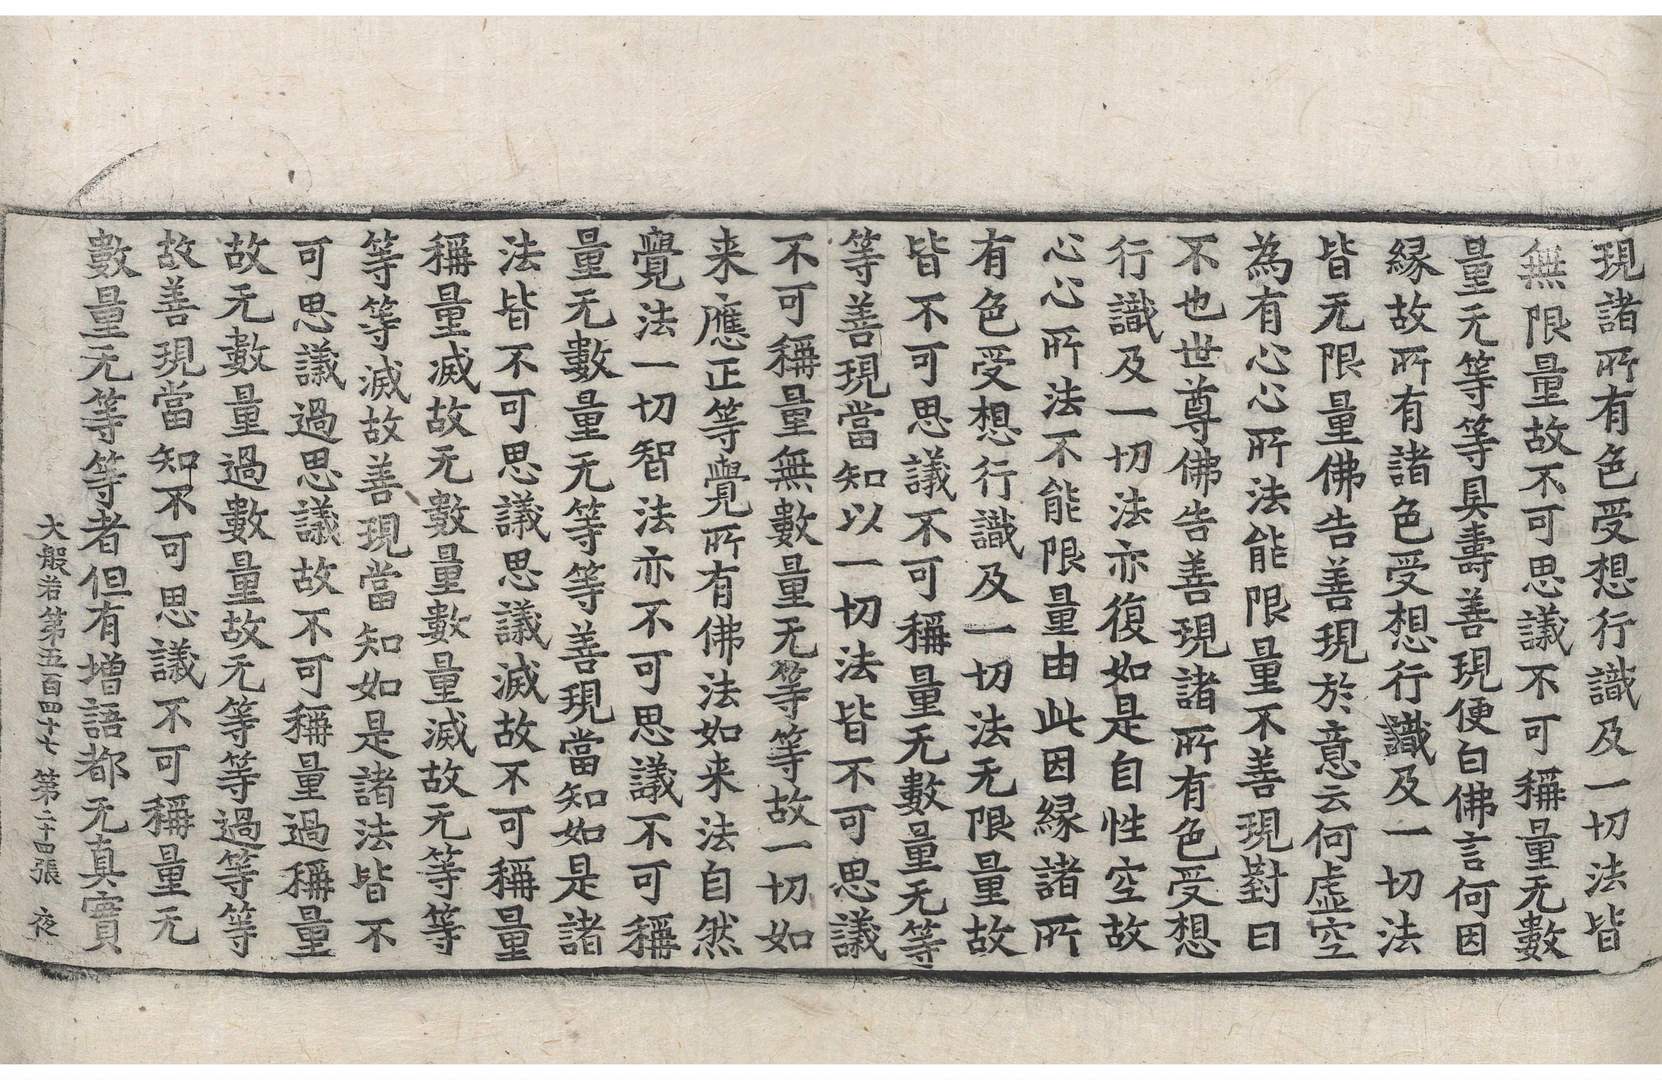 現諸所有色受想行識及一切法皆
無限量故不可思議不可稱量无數
量无等等具壽善現便白佛言何因
緣故所有諸色受想行識及一切法
皆无限量佛告善現於意云何虛空
為有心心所法能限量不善現對曰
不也世尊佛告善現諸所有色受想
行識及一切法亦復如是自性空故
心心所法不能限量由此因緣諸所
有色受想行識及一切法无限量故
皆不可思議不可稱量无數量无等
等善現當知以一切法皆不可思議
不可稱量無數量无等等故一切如
来應正等覺所有佛法如来法自然
覺法一切智法亦不可思議不可稱
量无數量无等等善現當知如是諸
法皆不可思議思議滅故不可稱量
稱量滅故无數量數量滅故无等等
等等滅故善現當知如是諸法皆不
可思議過思議故不可稱量過稱量
故无數量過數量故无等等過等等
故善現當知不可思議不可稱量无
數量无等等者但有增語都无真實
大般若第五百四十七 第二十四張 夜